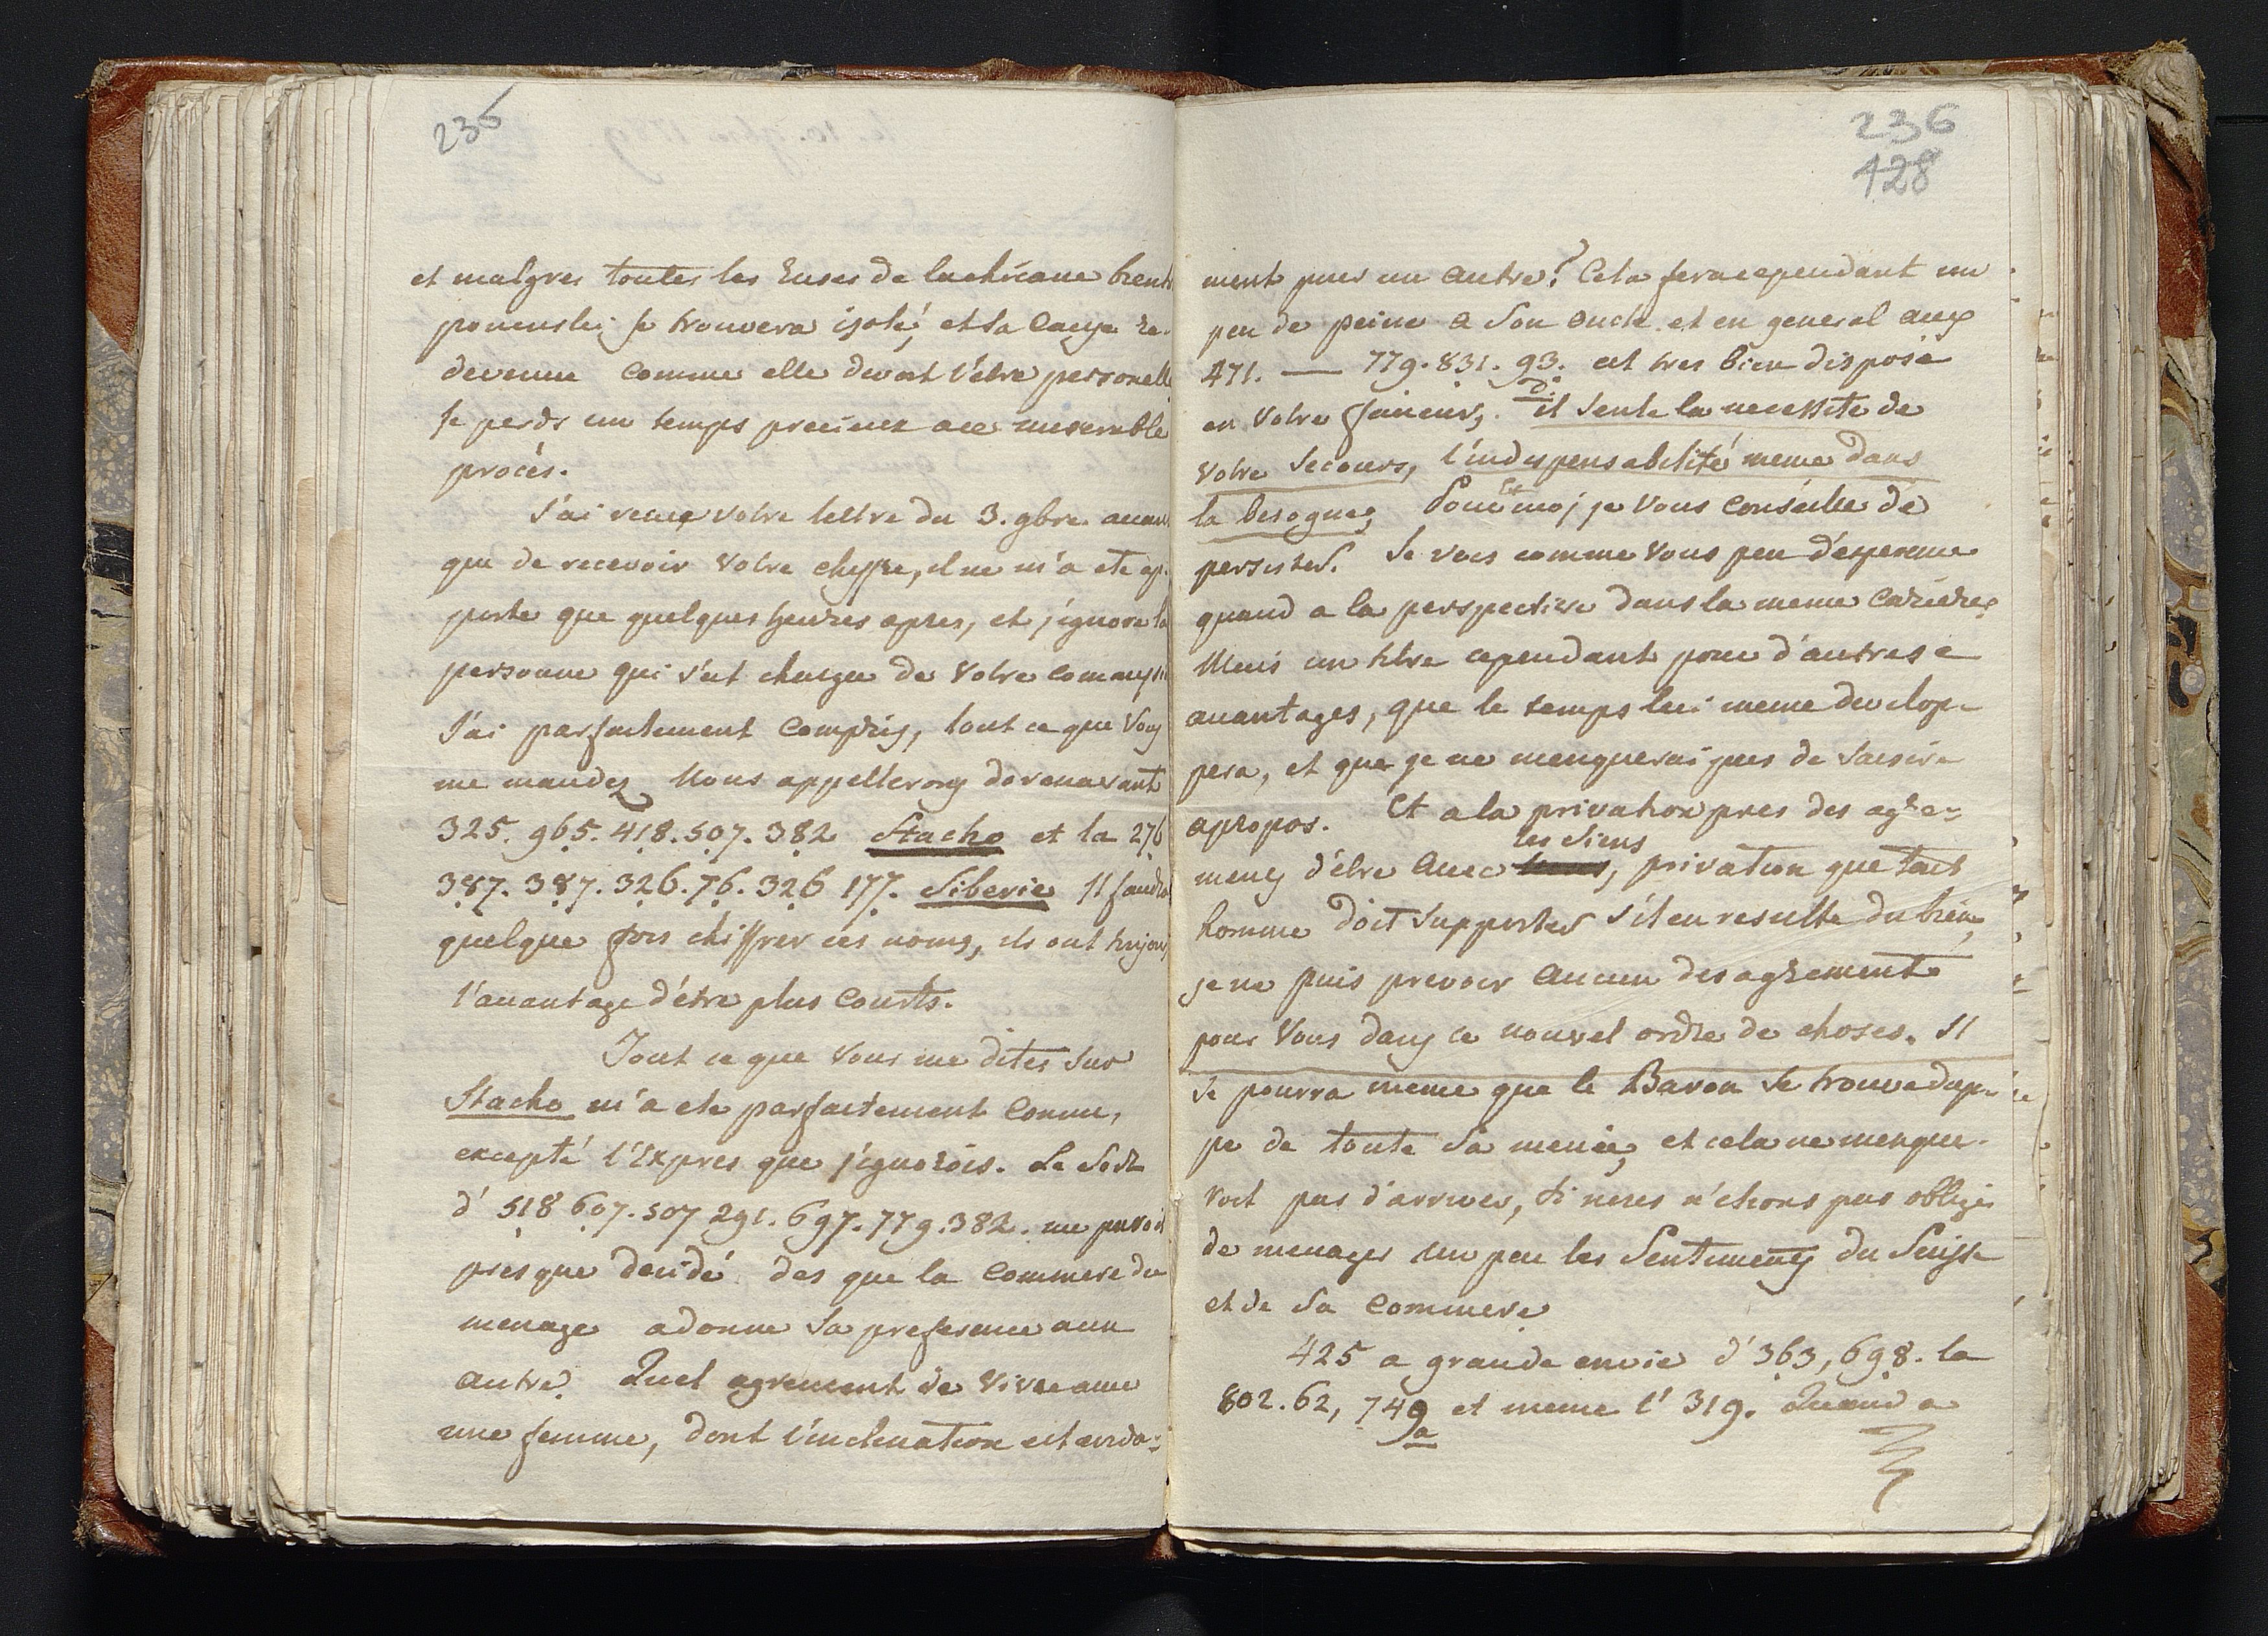 236
et malgres toutes les ruses de la chicane bient
poninski se trouvera isolé, et sa cause re-
devenue comme elle devoit l'étre personelle
Je perds un temps precieux a ce miserable
procès.
J'ai reçu votre lettre du 3. 9bre avant
que de recevoir votre chyffre, il ne m'a ete ap-
porte que quelques heures apres, et j'ignore la
personne qui s'est chargee de votre
J'ai parfaitement compris, tout ce que vous
me mandez Nous appellerons dorenavant
325. 965. 418. 507. 382 Stacho et la 276
387. 387. 326. 76. 326 177. Siberie Il faudra
quelque fois chiffrer ces noms, ils ont toujours
l'avantage d'étre plus courts.
Tout ce que vous me dites sur
Stacho m'a ete parfaitement connu,
excepté l'Expres que j'ignorois. Le sort
d' 518 607. 507 291. 697. 779. 382. me paroit
presque decidé des que la commere du
menage a donne sa preference a un
autre. Quel agrement de vivre avec
une femme, dont l'inclination est
236
428
ment pour un autre? Cela fera cependant un
peu de peine a son oncle et en general aux
471. — 779. 831. 93. est tres bien disposé
en votre faveur, il sente la necessite de
votre secours, l'indispensabilité meme dans
la besogne, Pour moi je vous conseille de
persister. Je vois comme vous peu d'esperance
quand a la perspective dans la meme cariere,
Mais un titre cependant pour d'autres
avantages, que le temps lui meme develop-
pera, et que je ne menquerai pas de saisir
apropos. Et a la privation pres des agre-
les siens
mens d'étre avec , privation que tout
homme doit supporter s'il en resulte du bien,
je ne puis prevoir aucun desagrement
pour vous dans ce nouvel ordre de choses. Il
se pourra meme que le Baron se trouve dup-
pe de toute sa menée, et cela ne menque-
roit pas d'arriver, si nous n'etions pas obligés
de menager un peu les sentimens du Suisse
et de sa commere
425 a grande envie d' 363, 698. la
802. 62, 749 et meme l' 319. Quand a
a